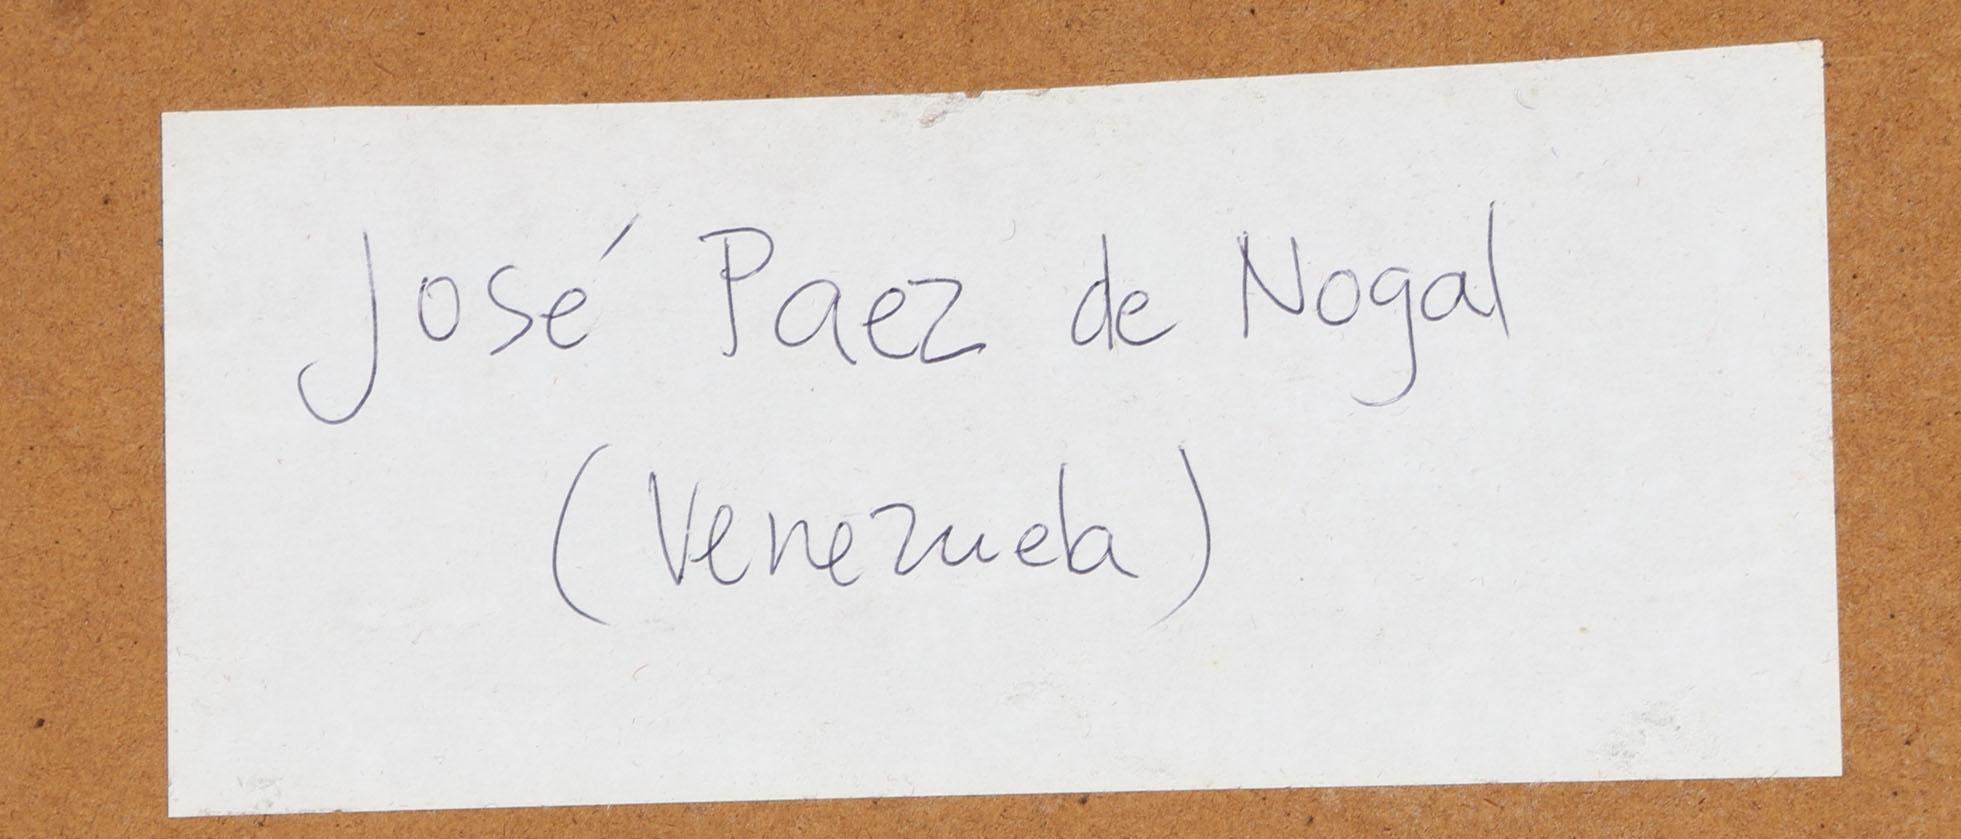 José Paez de Nogal
(Venezuela)